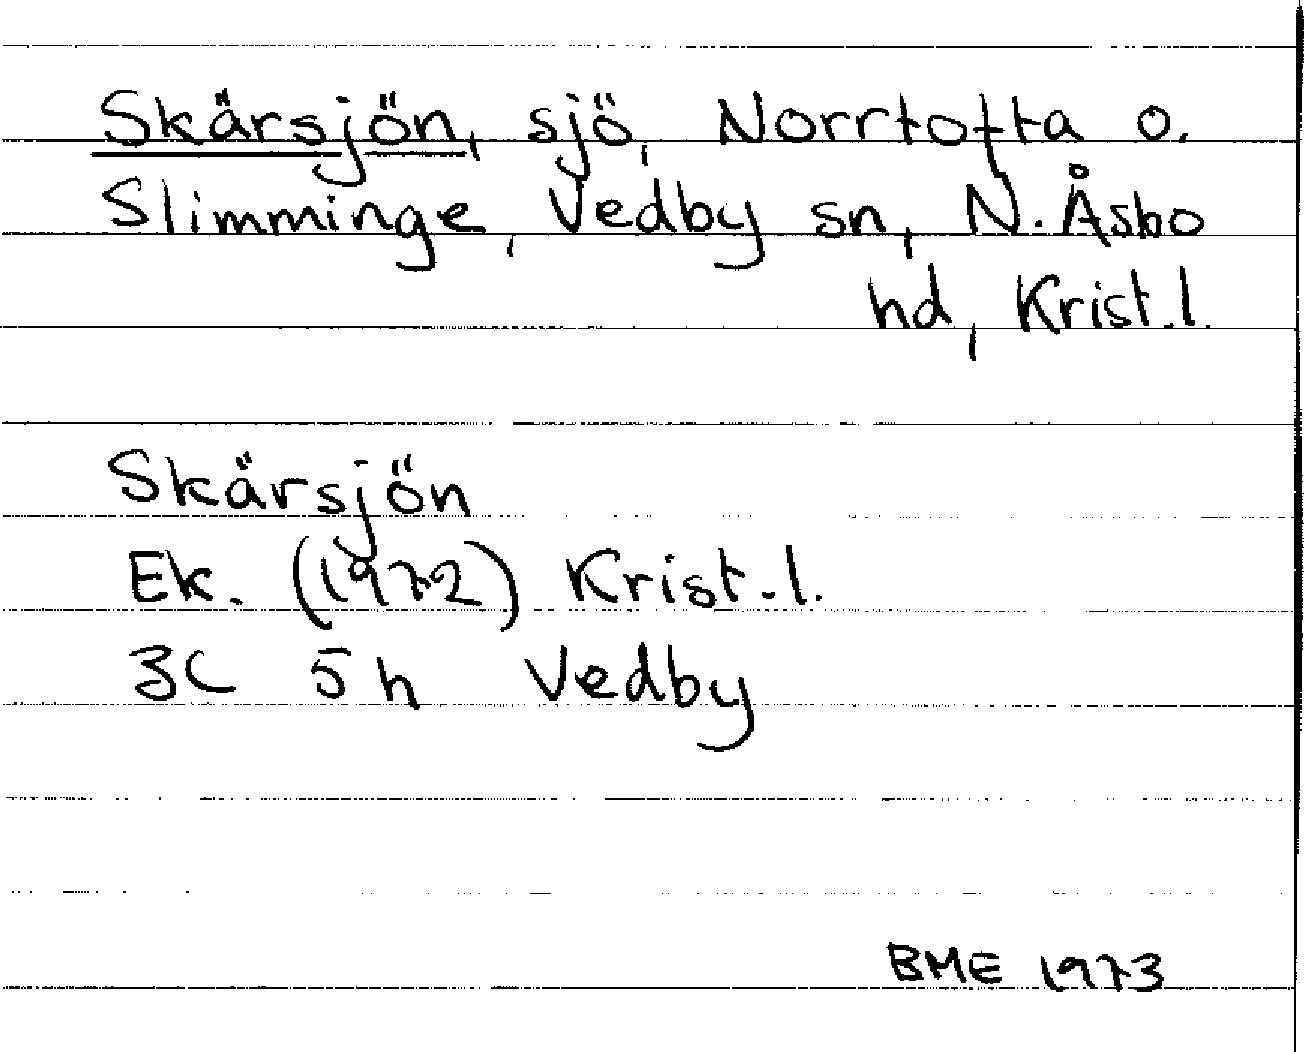 Skärsjön, sjö, Norrtofta o.
Slimminge, Vedby sn, N. Åsbo
hd, Krist.l.
Skärsjön
Ek. (1972) Krist.l.
3C 5h Vedby
BME 1973